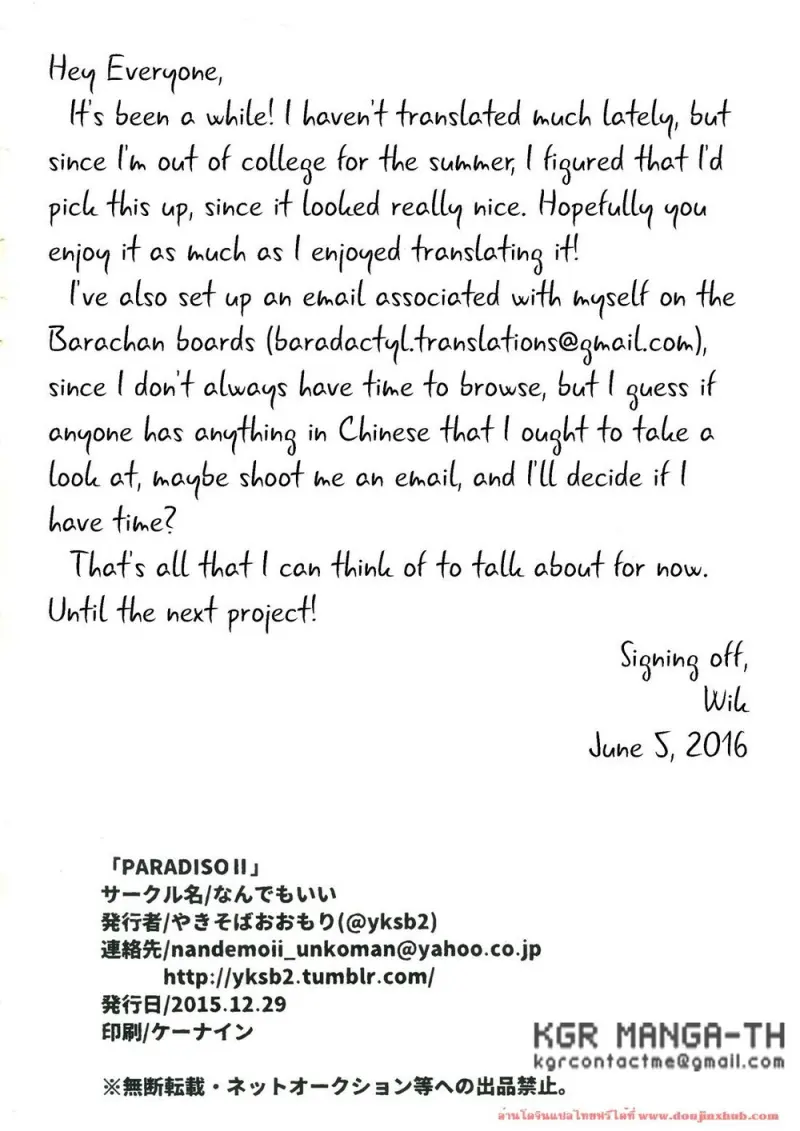 Hey Everyone,
It's been a while! I haven't translated much lately, but
since I'm out of college for the summer, I figured that I'd
pick this up, since it looked really nice. Hopefully you
enjoy it as much as I enjoyed translating it!
I've also set up an email associated with myself on the
Barachan boards (baradactyl.translations@gmail.com),
since I don't always have time to browse, but I guess if
anyone has anything in Chinese that I ought to take a
look at, maybe shoot me an email, and I'll decide if I
have time?
That's all that I can think of to talk about for now.
Until the next project!
Signing off,
Wik
June 5, 2016
「PARADISOⅡ」
サークル名/なんでもいい
発行者/やきそばおおもり(@yksb2)
連絡先/nandemoii_unkoman@yahoo.co.jp
http://yksb2.tumblr.com/
発行日/2015.12.29
印刷/ケーナイン
※無断転載・ネットオークション等への出品禁止。
KGR MANGA-TH
kgrcontactme@gmail.com
อ่านโดจินแปลไทยฟรีได้ที่ www.doujinxhub.com